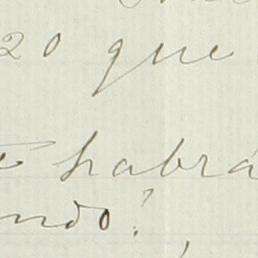 20 que
habrá
ndo!